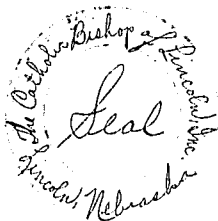 The Catholic Bishop of Lincoln, Inc.
Lincoln, Nebraska
Seal